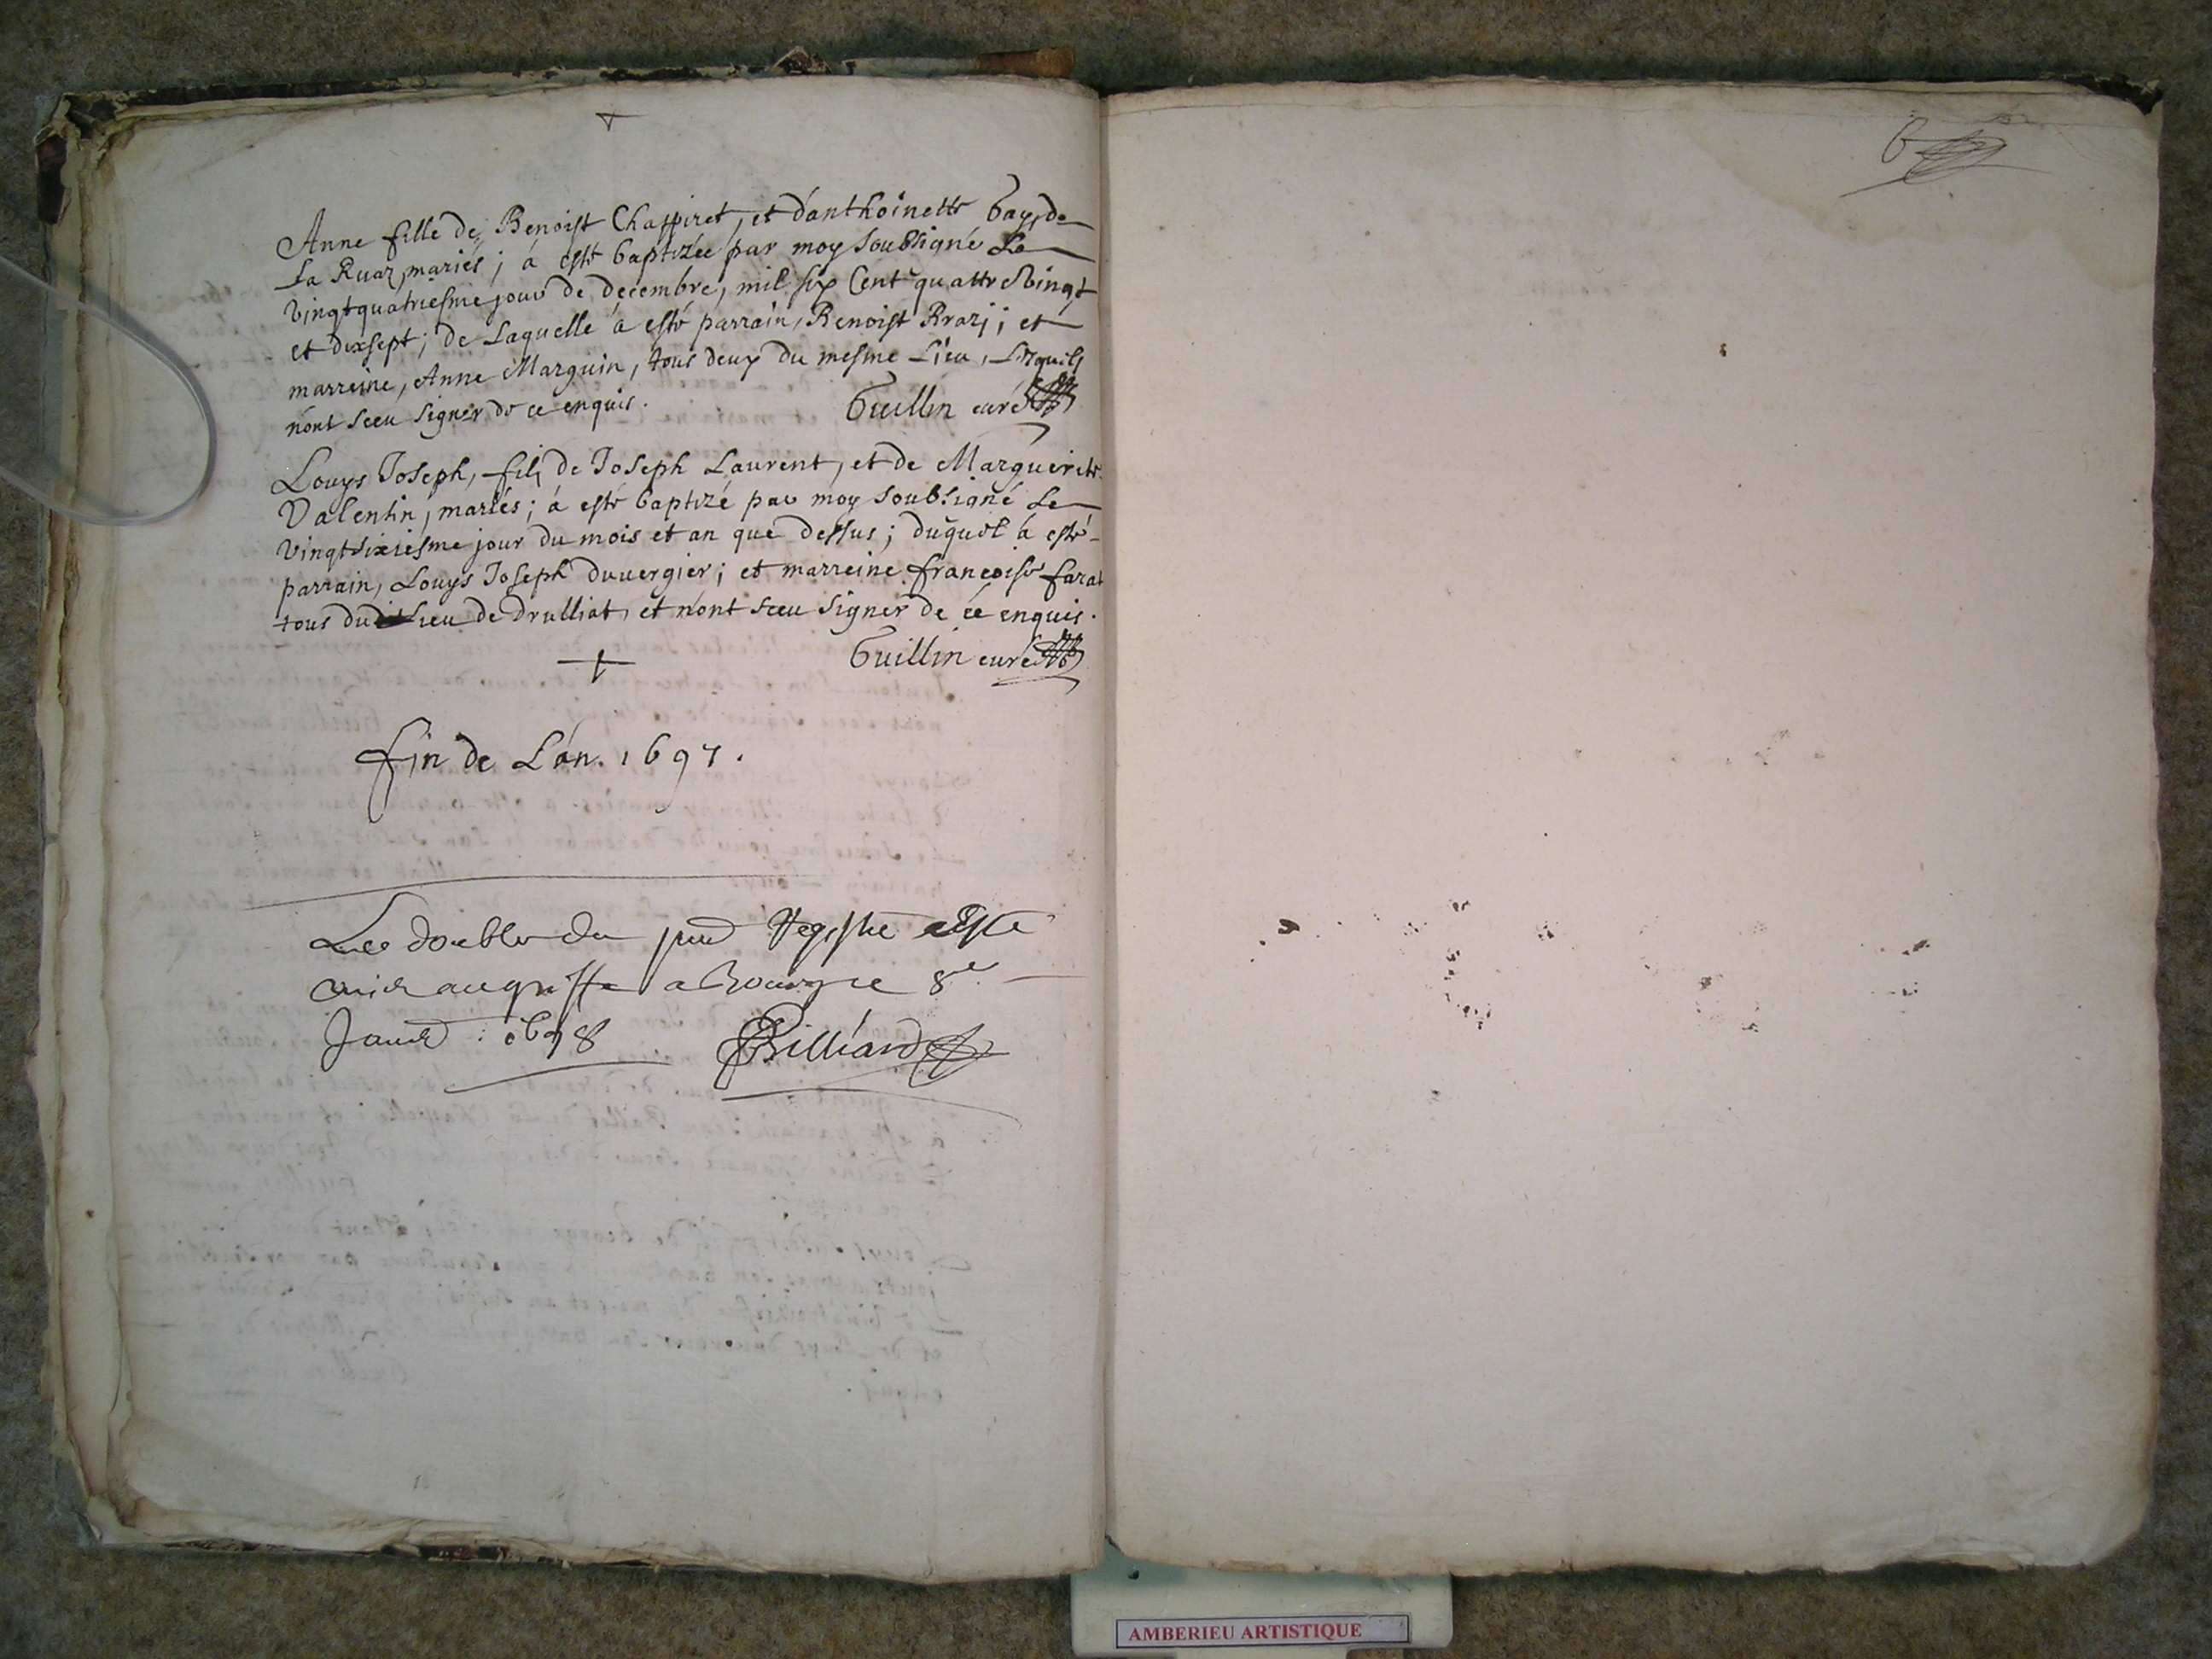 Anne fille de Benoist Chappiret, et d'anthoinette Gay, de
la Ruaz, mariés; á esté baptizée par moy soubsigné Le
vingtquatriesme jour de decembre, mil six Cent quattre Vingt
et dixsept; de Laquelle á esté parrain, Benoist ; et
marreine, Anne Marguin, tous deux du mesme Lieu, Lesquels
n'ont sceu signer de ce enquis.
Guillin curé
Louys Joseph, fils de Joseph Laurent, et de Marguerite
Valentin, mariés; á esté baptizé par moy soubsigné Le
vingtsixiesme jour du mois et an que dessus; duquel á esté
parrain, Louys Joseph duuergier; et marreine francoise farat
tous dudit Lieu de Drulliat, et n'ont sceu signer de ce enquis.
Guillin curé
fin de L'an. 1697.
Le double du pnt Registre a Esté
au greffe a Bourg ce 8e
Janvr : 1698 Billiard
6
AMBERIEU ARTISTIQUE